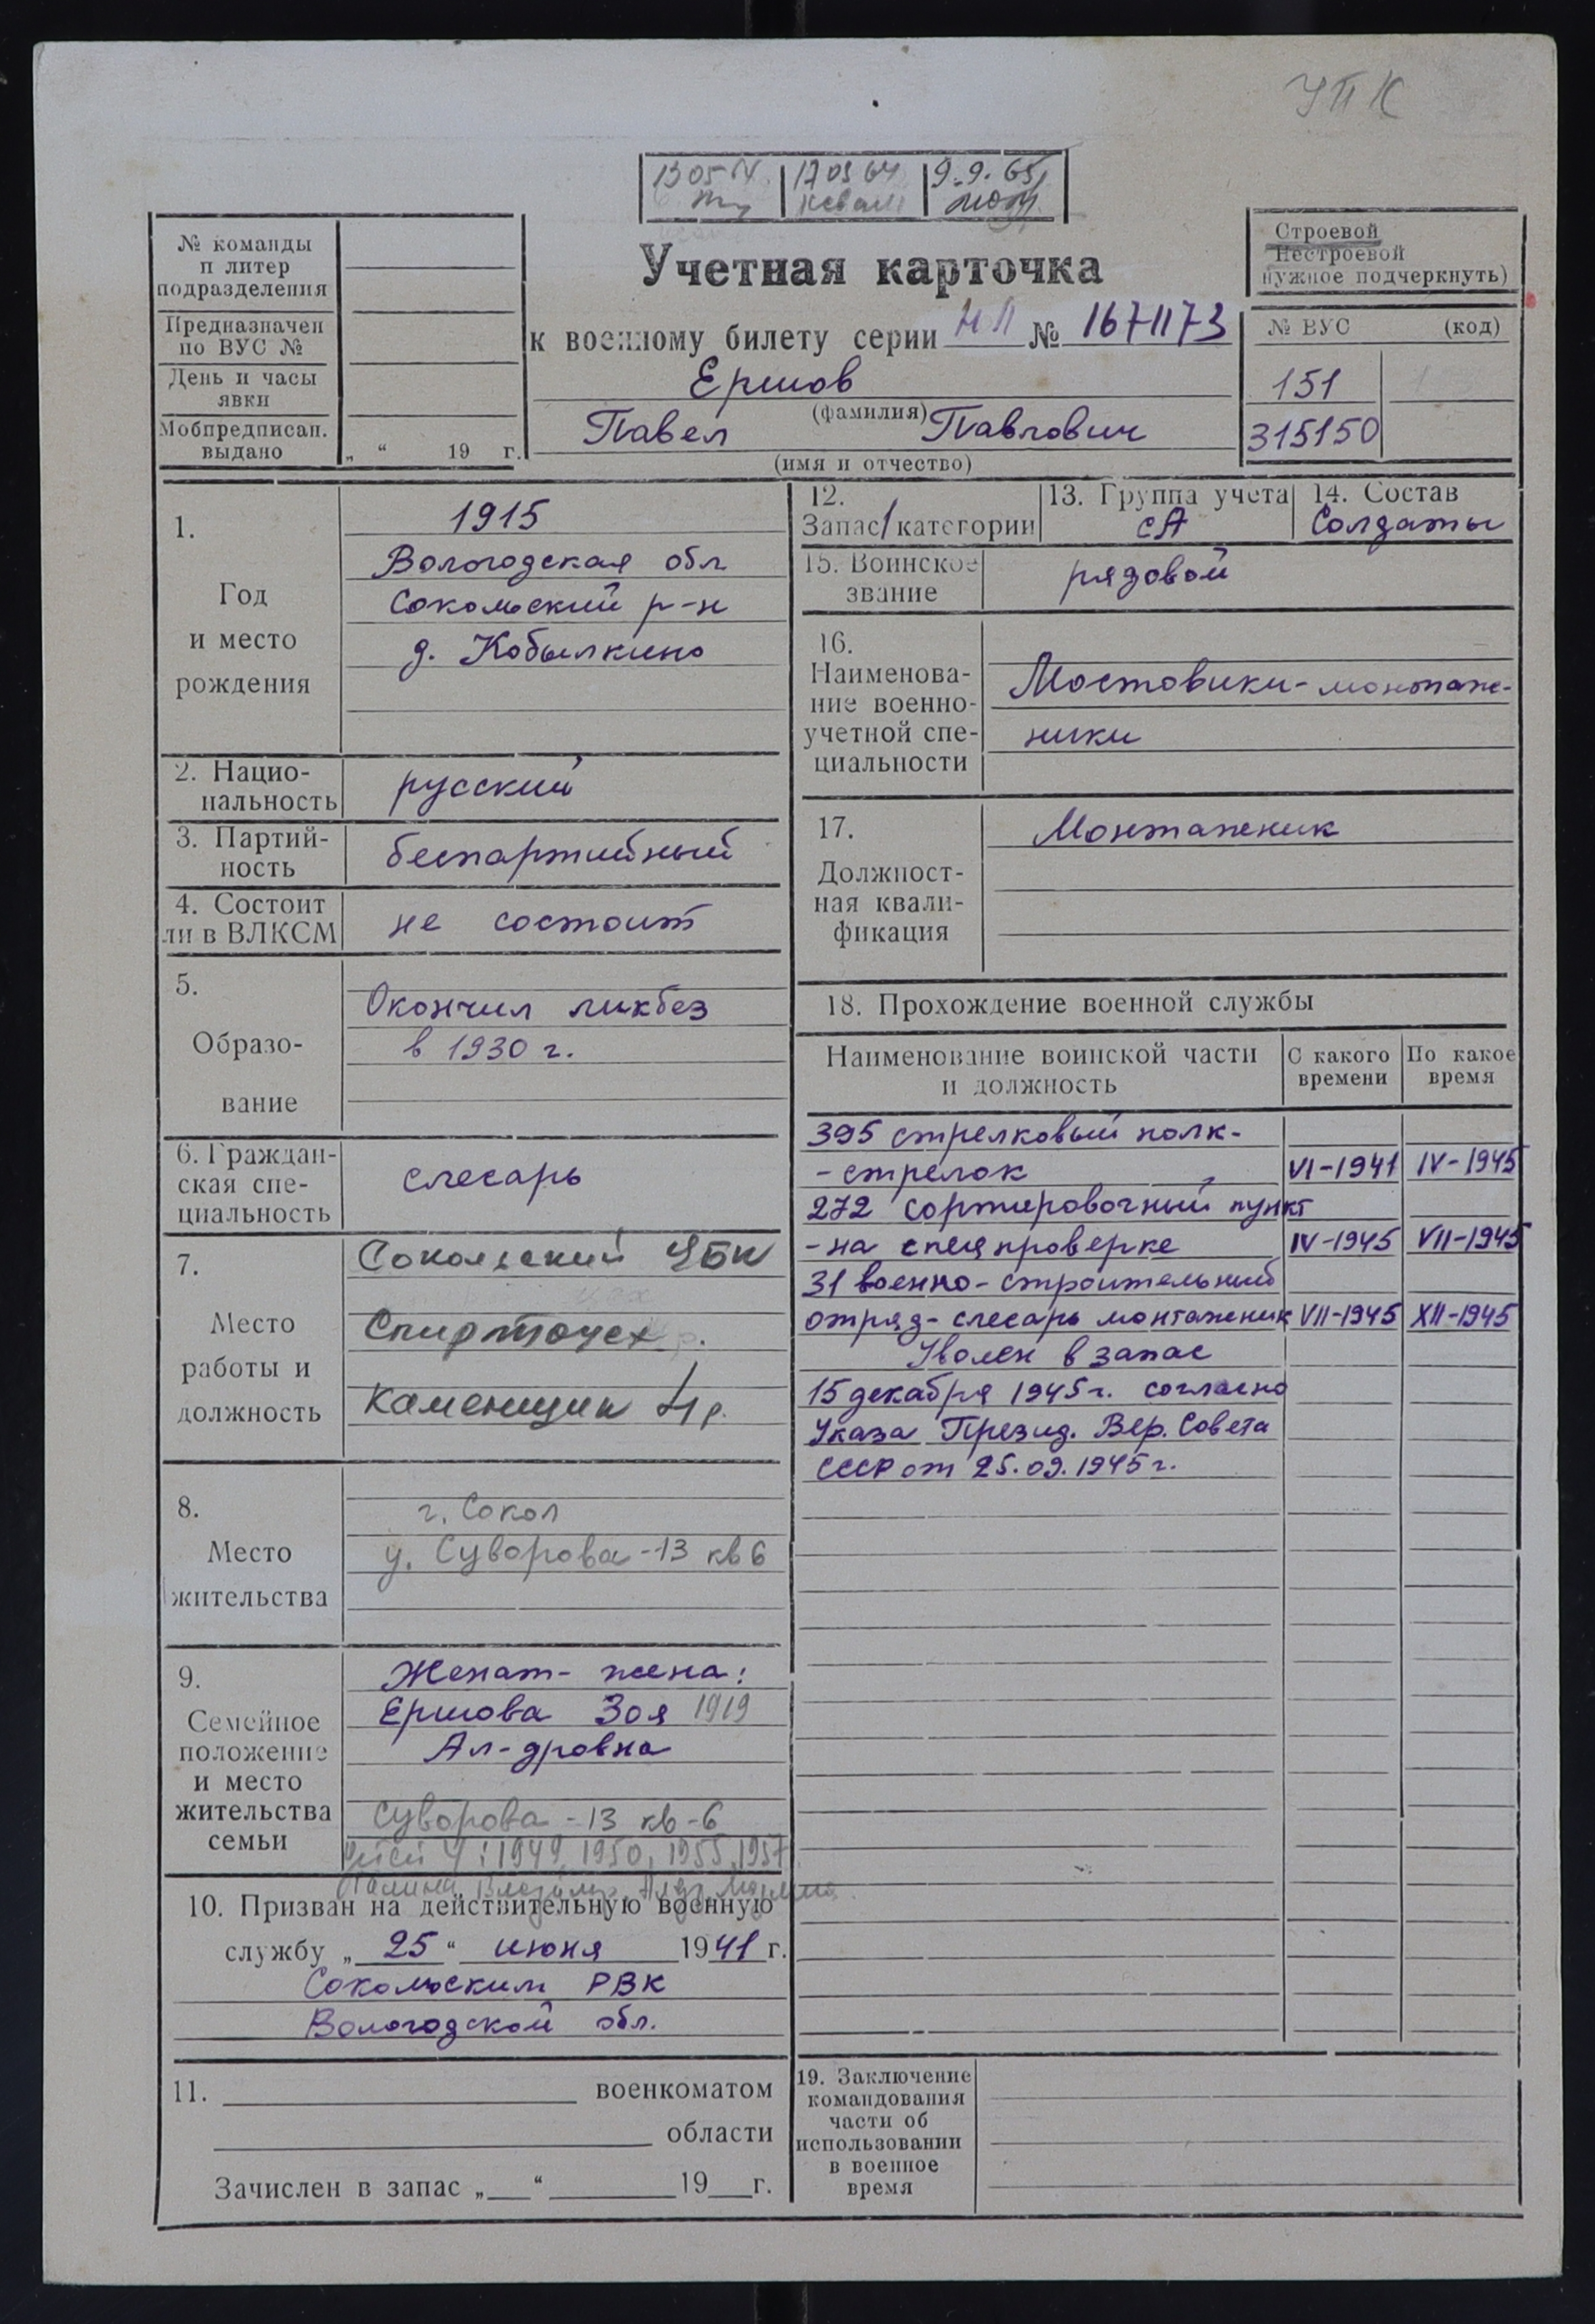 УПК
17 09 64
9.9.65
№ команды
и литер
подразделения
Предназначен
по ВУС №
День и часы
явки
Мобпредписан.
выдано
„ “ 19 г.
Учетная карточка
к военному билету серии НП № 1671173
Ершов
(фамилия)
Павел Павлович
(имя и отчество)
Строевой
Нестроевой
нужное подчеркнуть)
№ ВУС (код)
151
315150
1.
Год
и место
рождения
1915
Вологодская обл
Сокольский р-н
д. Кобылкино
2. Нацио-
нальность
русский
3. Партий-
ность
беспартийный
4. Состоит
ли в ВЛКСМ
не состоит
5.
Образо-
вание
Окончил ликбез
в 1930 г.
6. Граждан-
ская спе-
циальность
слесарь
7.
Место
работы и
должность
Сокольский ЦБК
Спиртоцех
Каменщик 4 р.
8.
Место
жительства
г. Сокол
у. Суворова-13 кв 6
9.
Семейное
положение
и место
жительства
семьи
Женат- жена:
Ершова Зоя 1919
Ал-дровна
Суворова-13 кв-6
4: 1949, 1950, 1955, 1957
10. Призван на действительную военную
службу „ 25 “ июня 1941 г.
Сокольским РВК
Вологодской обл.
11. военкоматом
области
Зачислен в запас „ “ 19 г.
12.
Запас 1 категории
13. Группа учета
СА
14. Состав
Солдаты
15. Воинское
звание
рядовой
16.
Наименова-
ние военно-
учетной спе-
циальности
Мостовики-монтаж-
ники
17.
Должност-
ная квали-
фикация
Монтажник
18. Прохождение военной службы
Наименование воинской части
и должность
С какого
времени
По какое
время
395 стрелковый полк-
-стрелок VI-1941 IV-1945
272 сортировочный пункт
-на спецпроверке IV-1945 VII-1945
31 военно-строительный
отряд-слесарь монтажник VII-1945 XII-1945
Уволен в запас
15 декабря 1945 г. согласно
Указа Презид. Вер. Совета
СССР от 25.09.1945 г.
19. Заключение
командования
части об
использовании
в военное
время